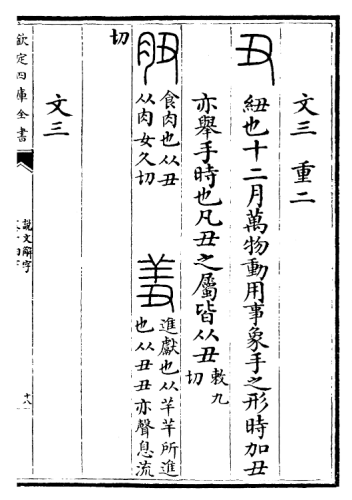 文三 重二
丑 紐也十二月萬物動用事象手之形時加丑
亦舉手時也凡丑之屬皆从丑 敕九切
肚 食肉也从丑从肉女久切
羞 進獻也从羊羊所進也从丑丑亦聲息流
切
文三
欽定四庫全書
說文解字